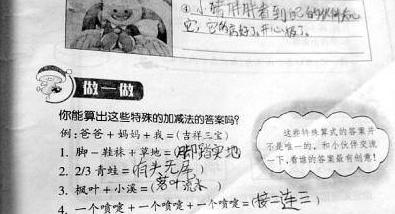 ④小猪胖胖看到自己的伙伴
做一做
你能算出这些特殊的加减法的答案吗?
例:爸爸+妈妈+我=(吉祥三宝)
1. 脚-鞋袜+草地=(脚踏实地)
2. 2/3青蛙=(有头无尾)
3. 枫叶+小溪=(落叶流水)
4. 一个喷嚏+一个喷嚏+一个喷嚏=(接二连三)
这些特殊算式的答案并
不是唯一的,和小伙伴交流
一下,看谁的答案最有创意!